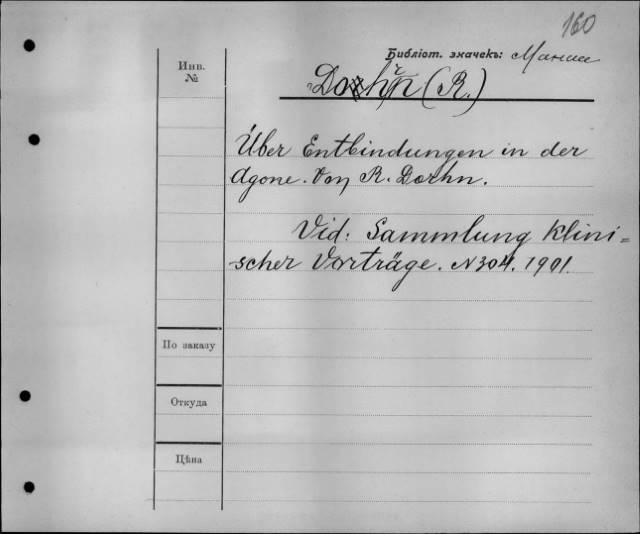 160
Библіот. значекъ:
Инв.
№
Dohrn (R.)
Über Entbindungen in der
Agone. Von R. Dorhn.
Vid: Sammlung klini=
scher Vorträge. N304. 1901.
По заказу
Откуда
Цѣна